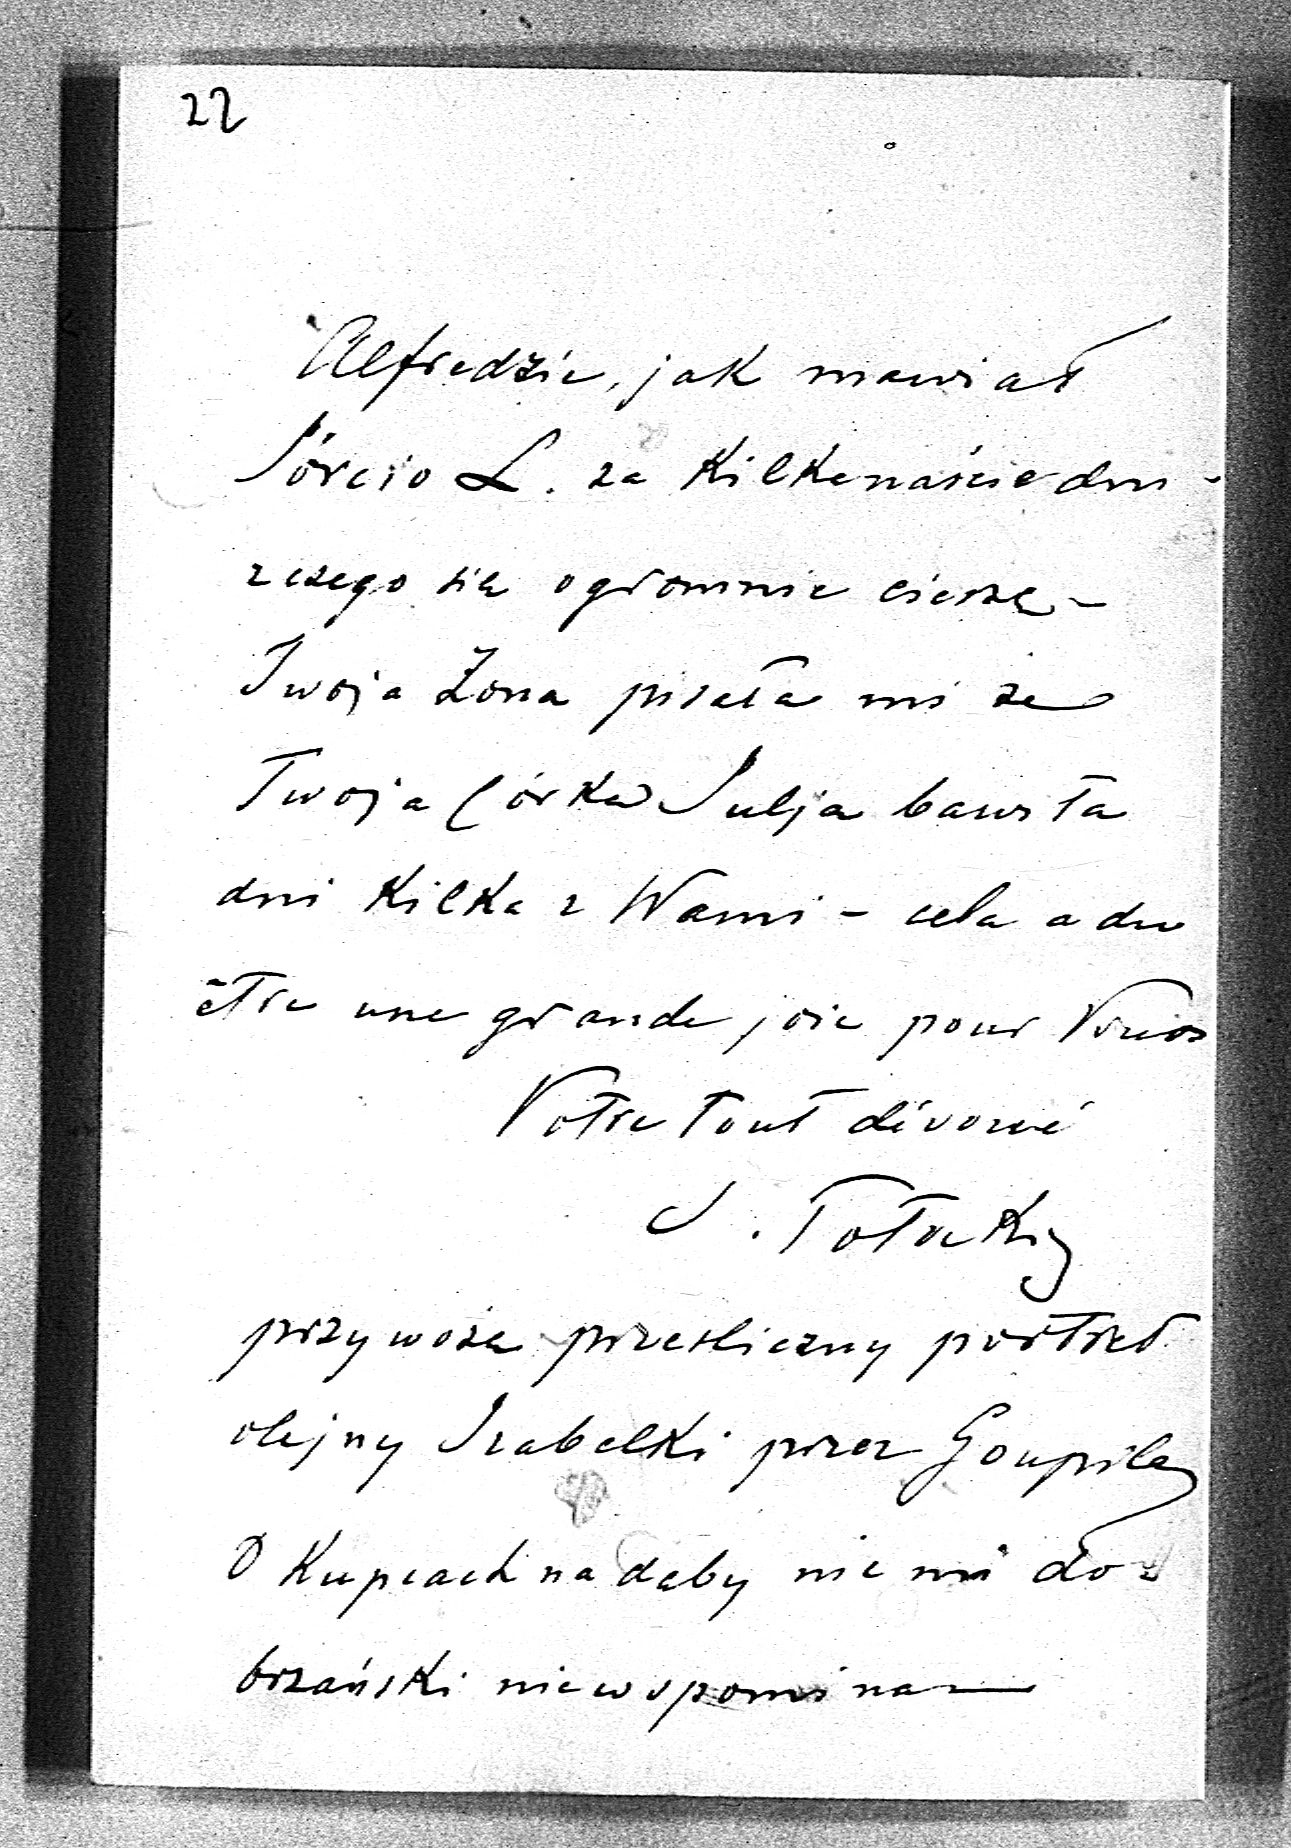 22
Alfredzie, jak mawiał
Józio L. za kilkanaście dni -
z czego się ogromnie cieszę -
Twoja Żona pisała mi że
Twoja Córka Julja bawiła
dni kilka z Wami - cela a du
être une grande joie pour Vous
Votre tout dévoué
J. Potocki
przywożę prześliczny portret
olejny Izabelki przez Goupila
O Kupcach na dęby nic mi do-
brzański nie wspomina —